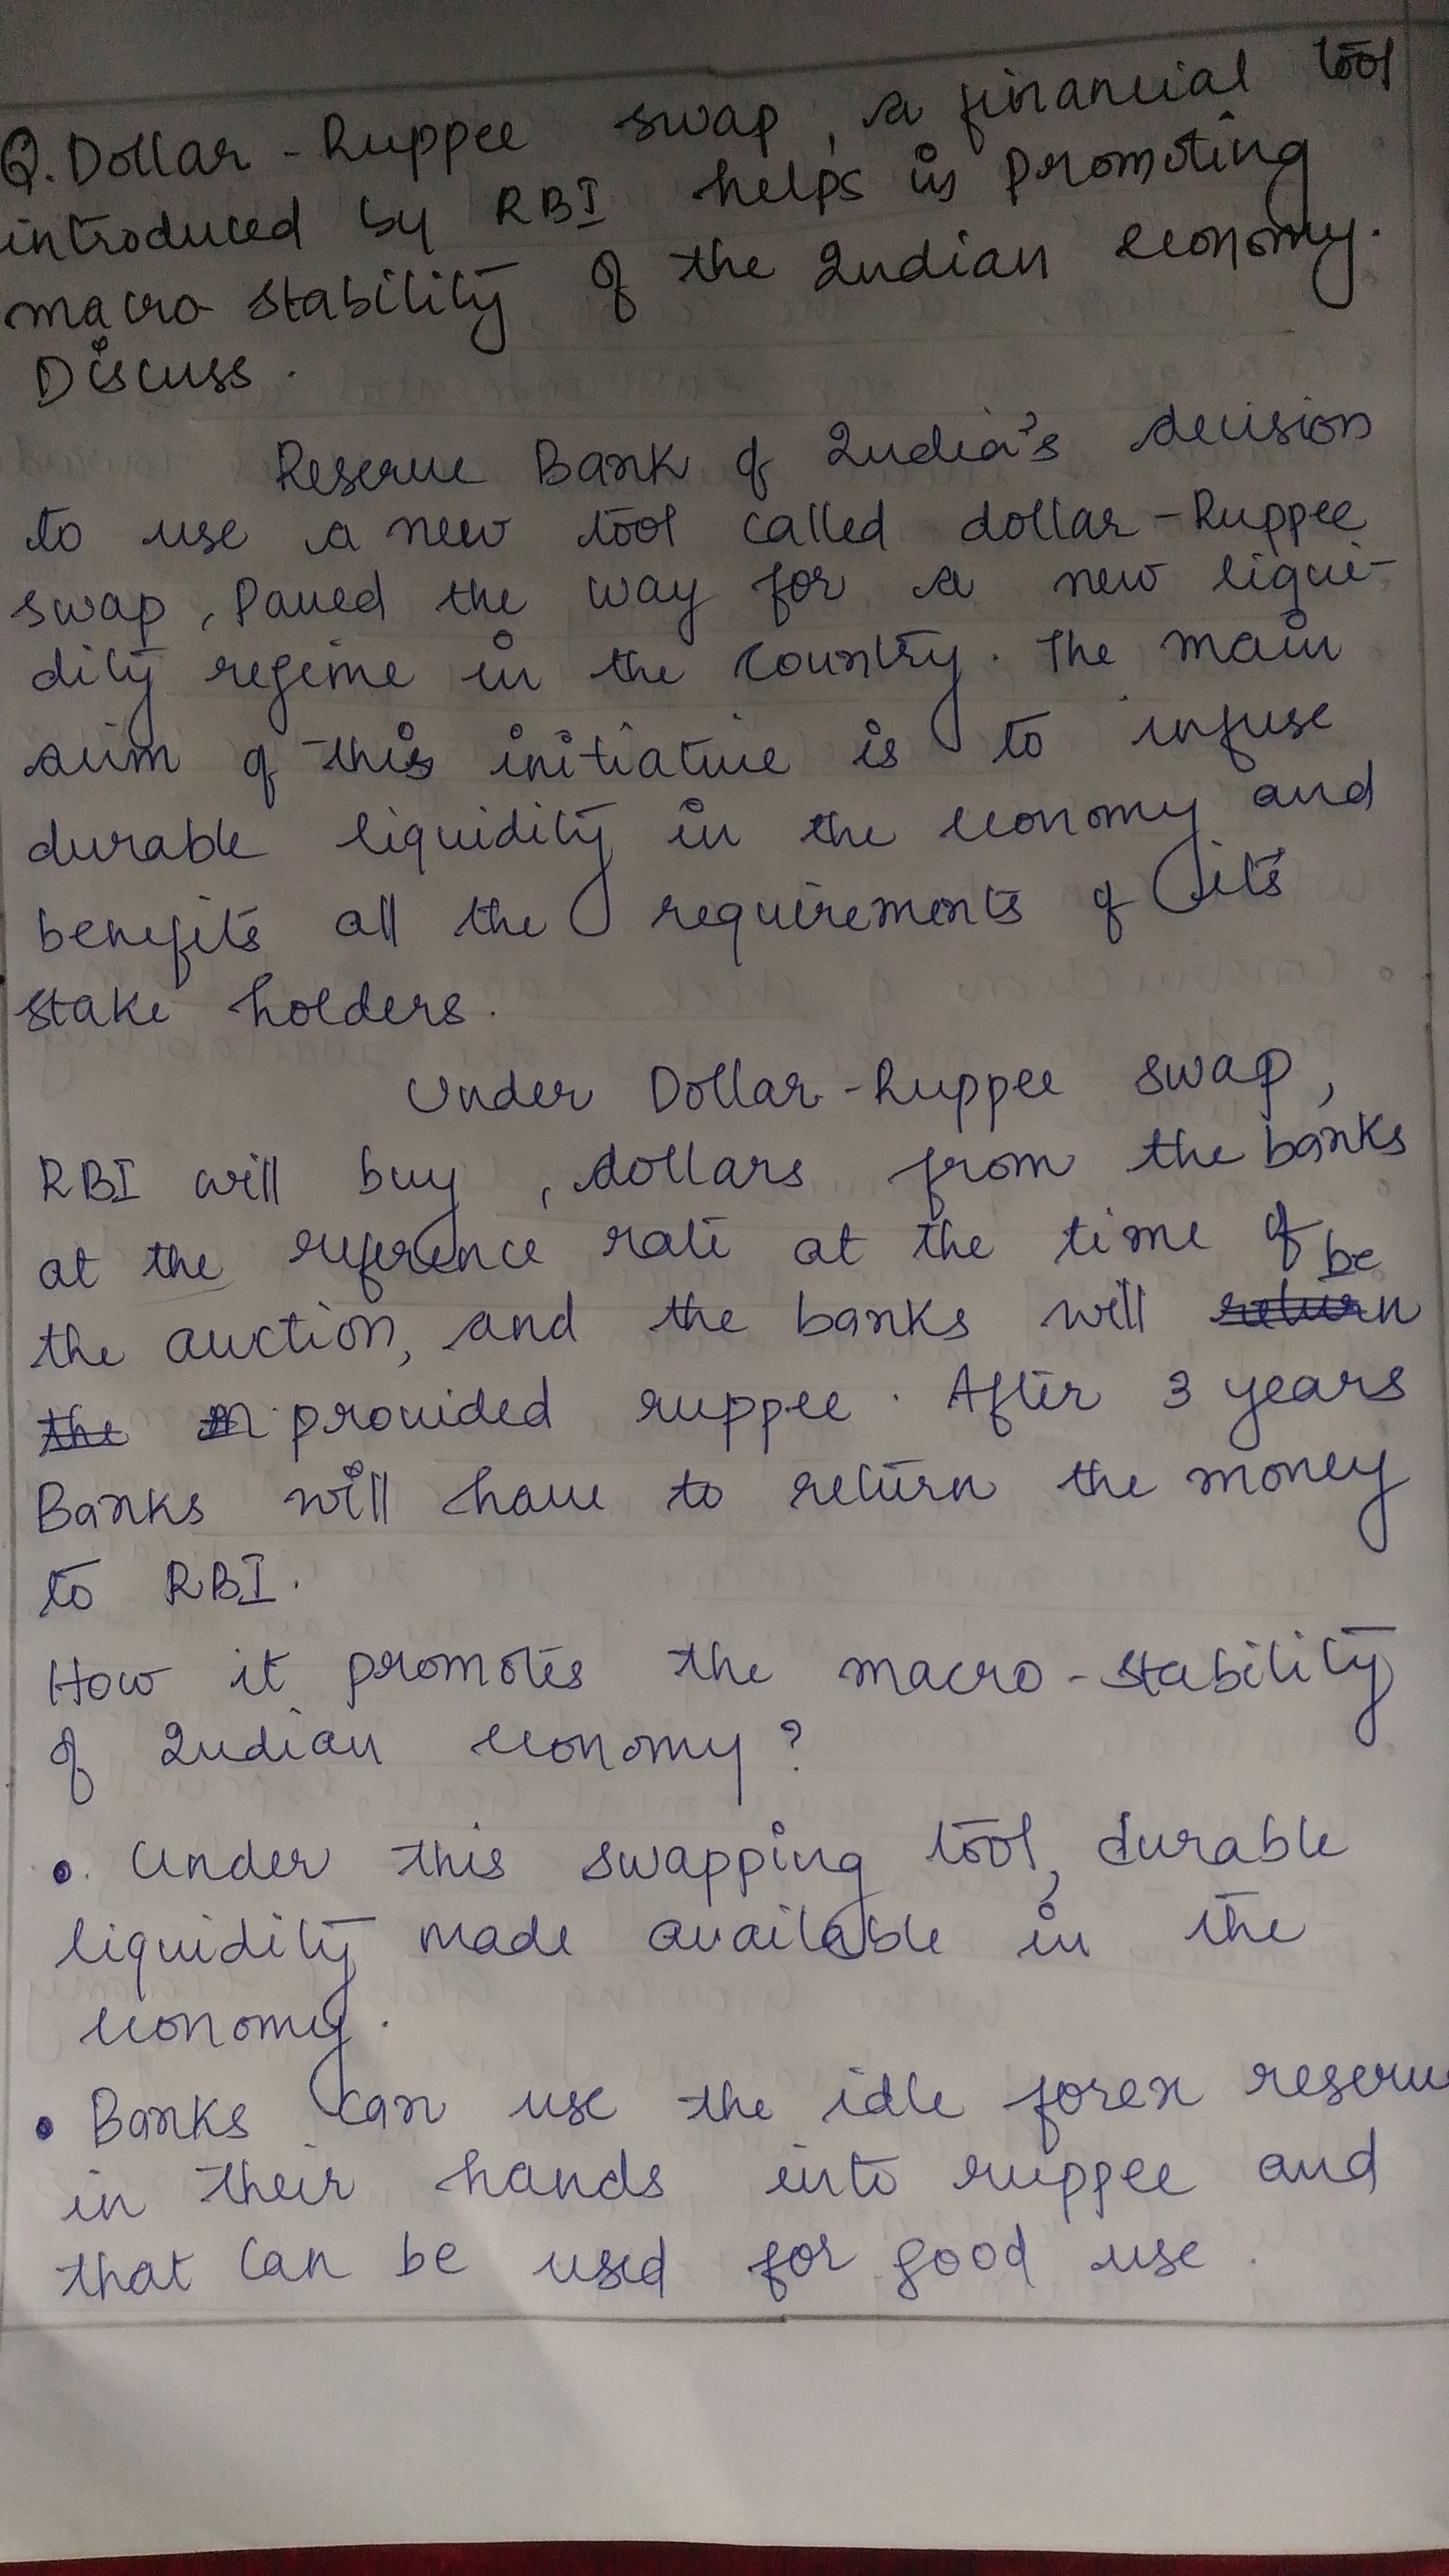 Q. Dollar - Ruppee swap, a financial tool
introduced by RBI helps is promoting
macro stability of the Indian economy.
Discuss.
Reserve Bank of India's decision
to use a new tool called dollar-Ruppee
swap, Paved the way for a new liqui-
dity regime in the country. The main
aim of this initiative is to infuse
durable liquidity in the economy and
benefits all the requirements of its
stake holders.
Under Dollar-Ruppee swap,
RBI will buy, dollars from the banks
at the reference rate at the time of
the auction, and the banks will return be
the provided ruppee. After 3 years
Banks will have to return the money
to RBI.
How it promotes the macro-stability
of Indian economy?
• Under this swapping tool, durable
liquidity made available in the
economy.
• Banks can use the idle forex reserve
in their hands into ruppee and
that can be used for good use.